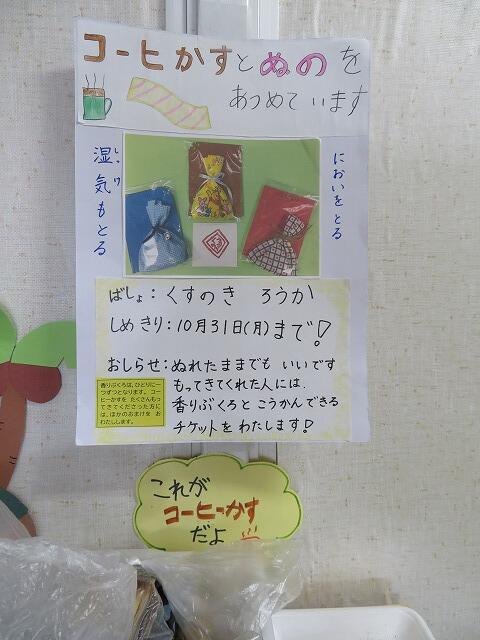 コーヒかすとぬのを
あつめています
湿気もとる
しっけ
においをとる
ばしょ:くすのき ろうか
しめきり:10月31日(月)まで!
おしらせ:ぬれたままでもいいです
もってきてくれた人には、
香りぶくろとこうかんできる
チケットをわたします!
香りぶくろは、ひとりに一
つずつとなります。コー
ヒーかすを たくさんもっ
てきてくださった方に
は、ほかのおまけを お
わたしします。
これが
コーヒーかす
だよ